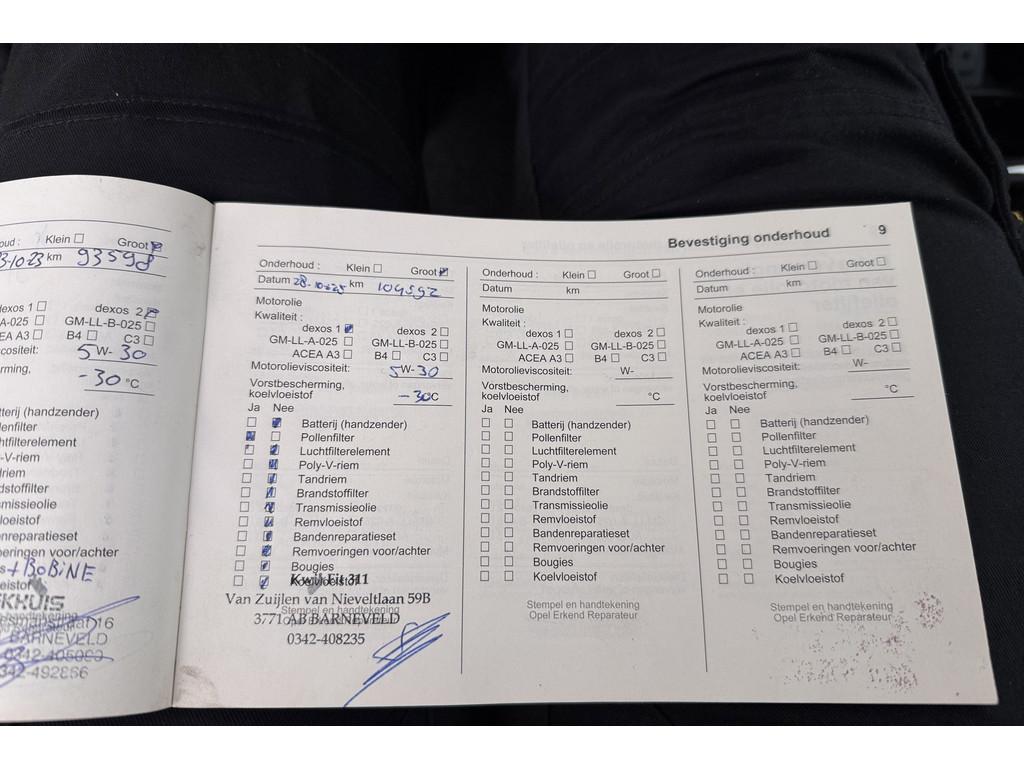 oud : Klein Groot
3-10-23 km 93598
dexos 1 dexos 2
A-025 GM-LL-B-025
EA A3 B4 C3
cositeit: 5W-30
rming,
-30 °C
tterij (handzender)
llenfilter
htfilterelement
y-V-riem
driem
dstoffilter
smissieolie
vloeistof
enreparatieset
oeringen voor/achter
s + BOBINE
eistof
KHUIS
en handtekening
16
BARNEVELD
0342-405000
342-492866
Bevestiging onderhoud 9
Onderhoud : Klein Groot
Datum km 104592
Motorolie
Kwaliteit :
dexos 1 dexos 2
GM-LL-A-025 GM-LL-B-025
ACEA A3 B4 C3
Motorolieviscositeit: 5W-30
Vorstbescherming,
koelvloeistof -30°C
Ja Nee
Batterij (handzender)
Pollenfilter
Luchtfilterelement
Poly-V-riem
Tandriem
Brandstoffilter
Transmissieolie
Remvloeistof
Bandenreparatieset
Remvoeringen voor/achter
Bougies
Koelvloeistof
Kwik Fit 311
Van Zuijlen van Nieveltlaan 59B
Stempel en handtekening
3771 AB BARNEVELD
0342-408235
Onderhoud : Klein Groot
Datum km
Motorolie
Kwaliteit :
dexos 1 dexos 2
GM-LL-A-025 GM-LL-B-025
ACEA A3 B4 C3
Motorolieviscositeit: W-
Vorstbescherming,
koelvloeistof °C
Ja Nee
Batterij (handzender)
Pollenfilter
Luchtfilterelement
Poly-V-riem
Tandriem
Brandstoffilter
Transmissieolie
Remvloeistof
Bandenreparatieset
Remvoeringen voor/achter
Bougies
Koelvloeistof
Stempel en handtekening
Opel Erkend Reparateur
Onderhoud : Klein Groot
Datum km
Motorolie
Kwaliteit :
dexos 1 dexos 2
GM-LL-A-025 GM-LL-B-025
ACEA A3 B4 C3
Motorolieviscositeit: W-
Vorstbescherming,
koelvloeistof °C
Ja Nee
Batterij (handzender)
Pollenfilter
Luchtfilterelement
Poly-V-riem
Tandriem
Brandstoffilter
Transmissieolie
Remvloeistof
Bandenreparatieset
Remvoeringen voor/achter
Bougies
Koelvloeistof
Stempel en handtekening
Opel Erkend Reparateur